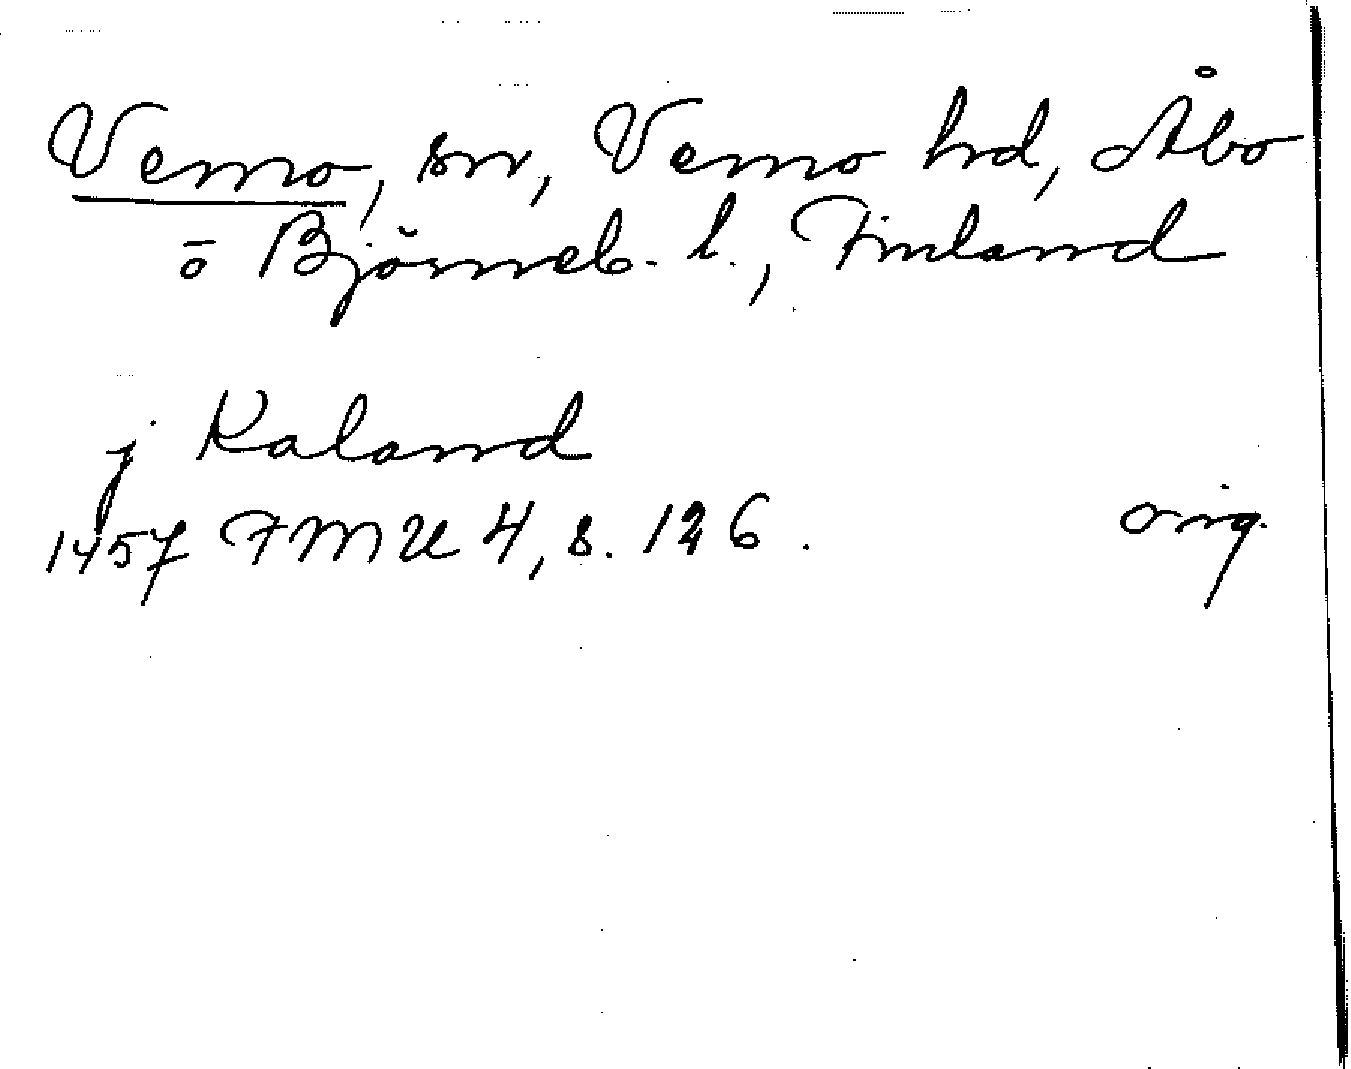 Vemo, sn, Vemo hd, Åbo
o Björneb. l., Finland
j Kaland
1457 FMU 4, s. 126. orig.